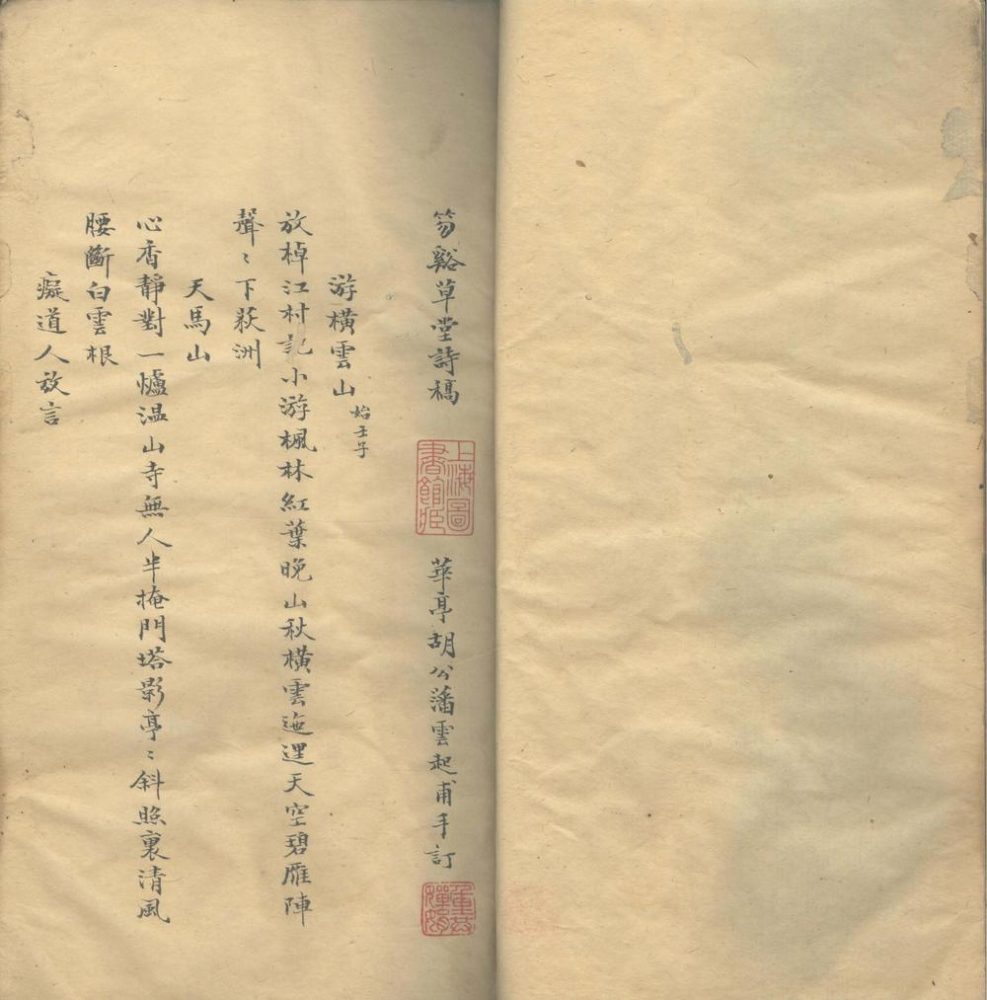 笏谿草堂詩稿 華亭胡公藩雲起甫手訂
上海圖書館藏
游橫雲山 始壬子
放棹江村記小游楓林紅葉晚山秋橫雲迤逦天空碧雁陣
聲〻下荻洲
天馬山
心香靜對一爐温山寺無人半掩門塔影亭〻斜照裏清風
腰斷白雲根
癡道人放言